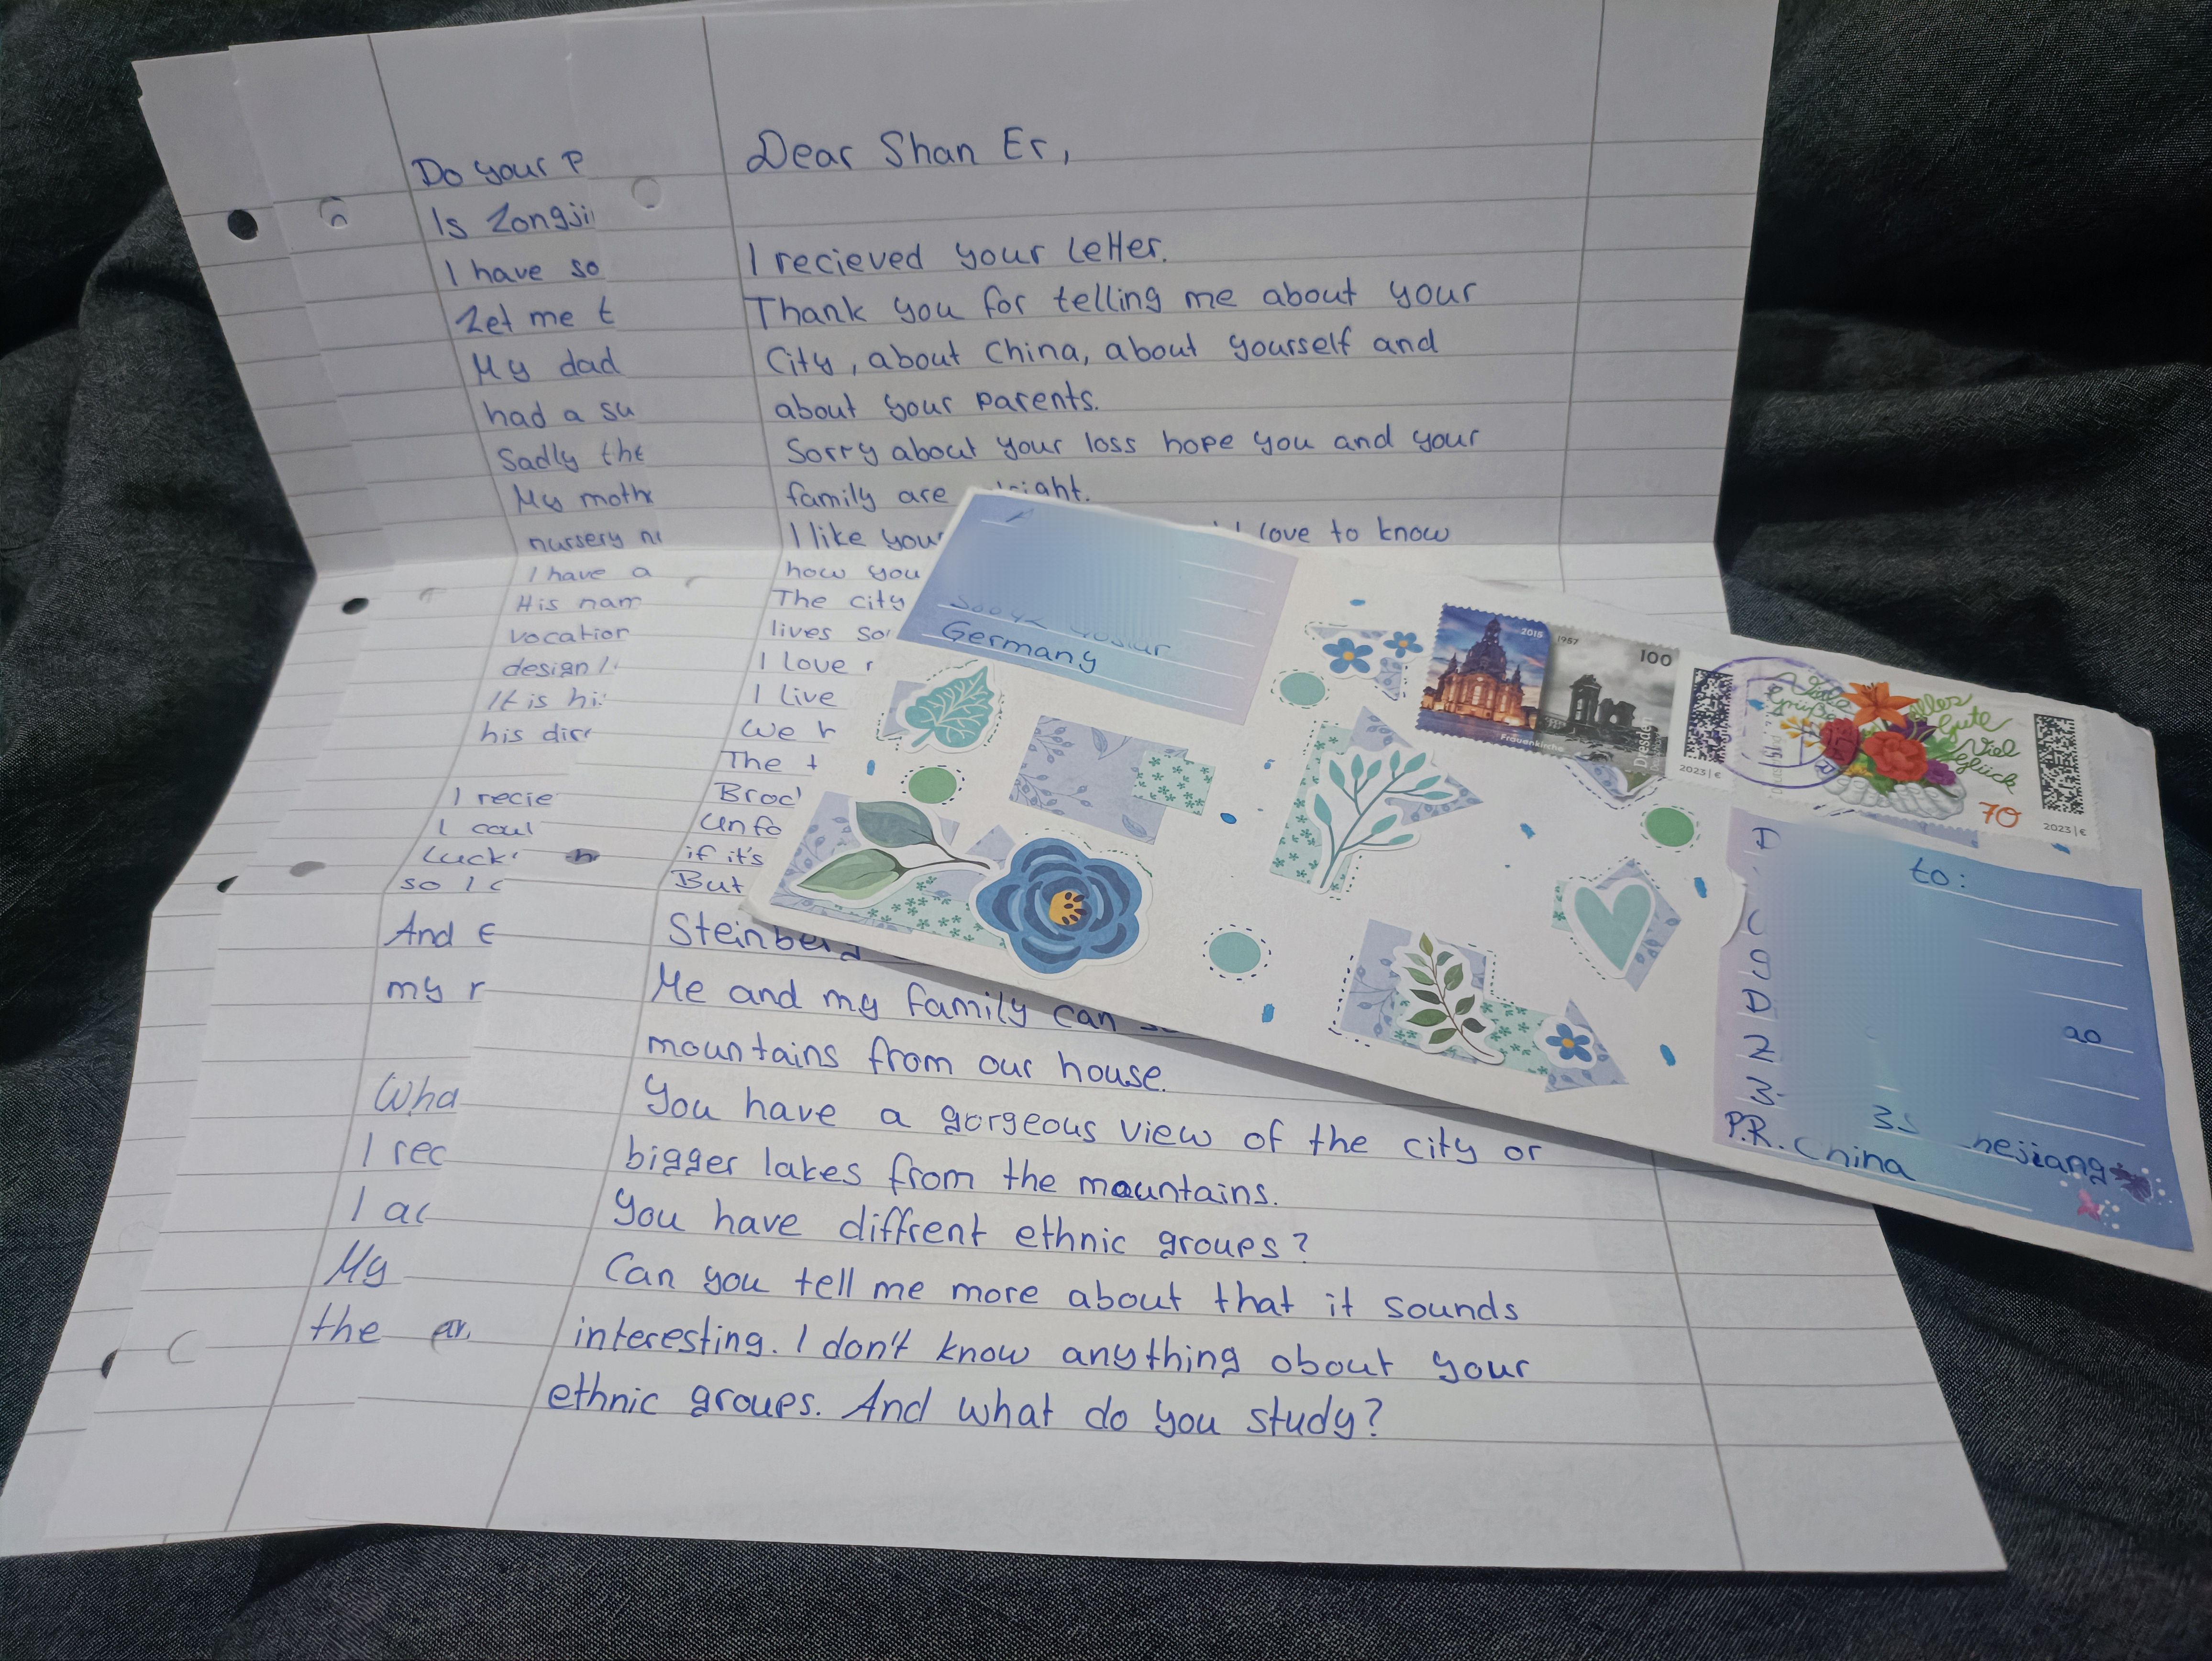 Do your P
Is Zongji
I have so
Let me t
My dad
had a su
Sadly the
My moth
nursery n
I have a
His nam
vocation
design
It is hi
his dire
I recie
I coul
Luck
so I c
And E
my r
Wha
I rec
I ac
My
the
Dear Shan Er,
I recieved your letter.
Thank you for telling me about your
City, about China, about yourself and
about your parents.
Sorry about your loss hope you and your
family are
I like your love to know
how you
The city
lives so
I love
I live
We h
The t
Broc
Unfo
if it's
But
Steinberg
Me and my family can
mountains from our house.
You have a gorgeous view of the city or
bigger lakes from the mountains.
You have diffrent ethnic groups?
Can you tell me more about that it sounds
interesting. I don't know anything about your
ethnic groups. And what do you study?
Germany
2015 1957 100
Frauenkirche
Dresden
2023 | €
Viele
Grüße
Alles
Gute
Viel
Glück
70
2023 | €
to:
ao
hejiang
P.R. China